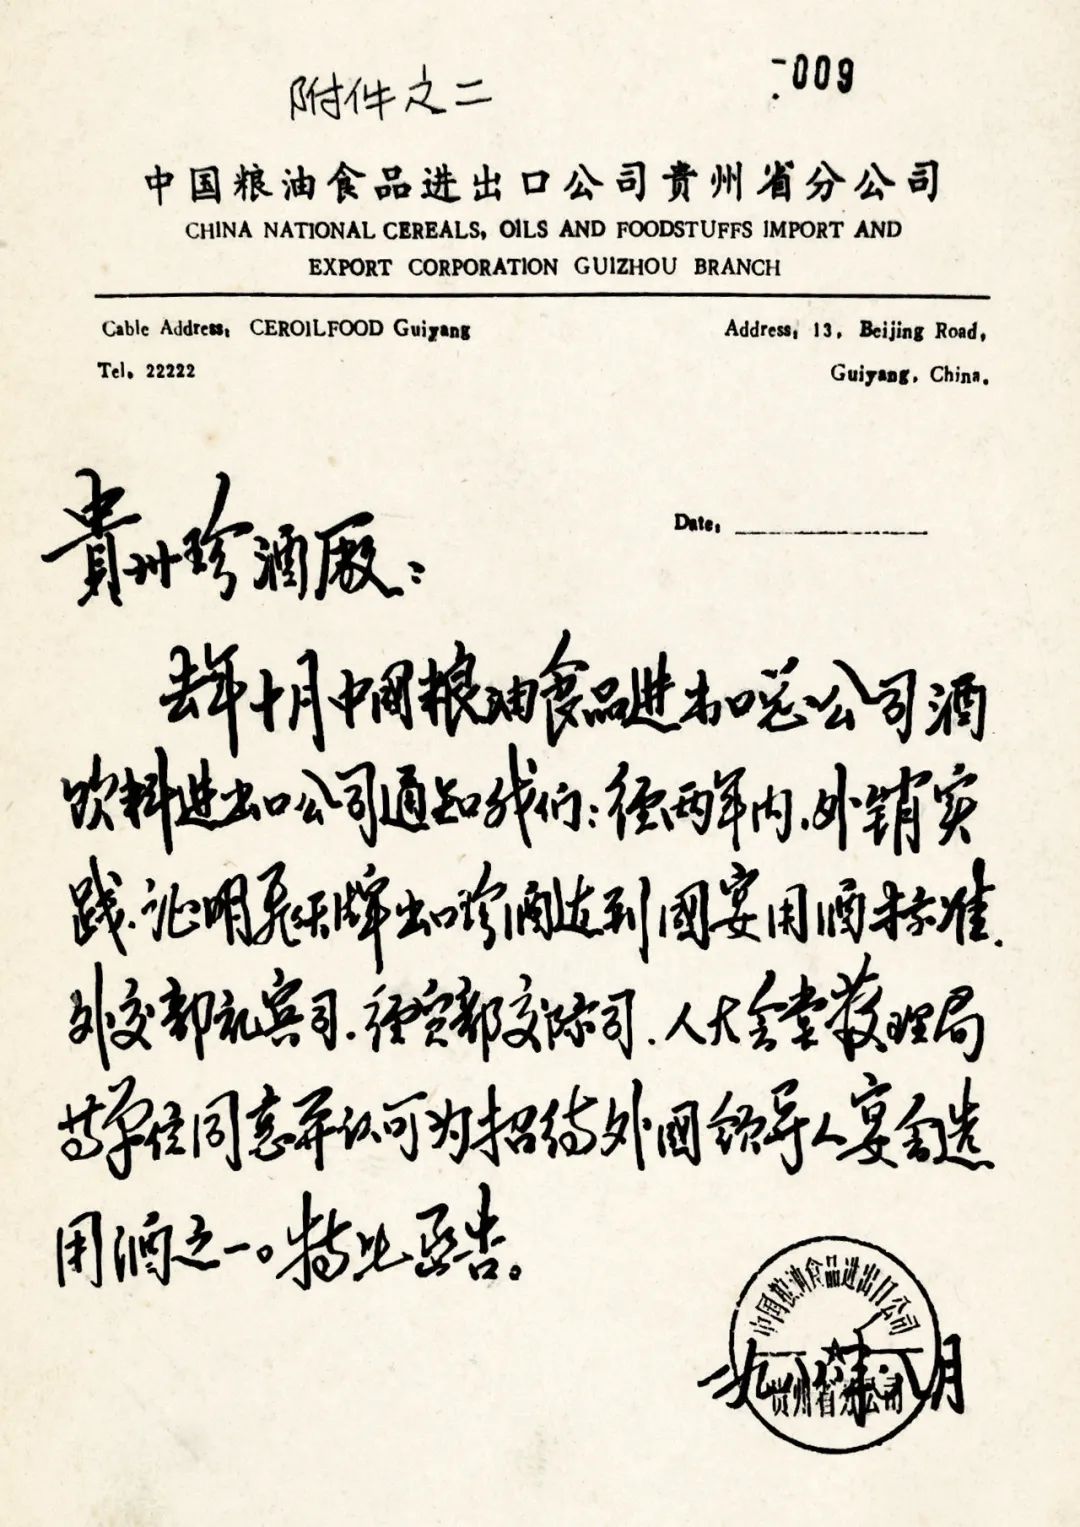 附件之二
009
中国粮油食品进出口公司贵州省分公司
CHINA NATIONAL CEREALS, OILS AND FOODSTUFFS IMPORT AND
EXPORT CORPORATION GUIZHOU BRANCH
Cable Address: CEROILFOOD Guiyang
Address: 13, Beijing Road,
Tel. 22222
Guiyang, China.
Date:
貴州珍酒厰：
去年十月中國粮油食品进出口总公司酒
饮料进出口公司通知我们：径两年内、外销实
践、证明飛天牌出口珍酒达到國宴用酒标准、
外交部礼宾司、径贸部交际司、人大会堂管理局
等单位同意并认可为招待外國领导人宴会选
用酒之一。特此函告。
中国粮油食品进出口公司
贵州省分公司
一九八八年八月